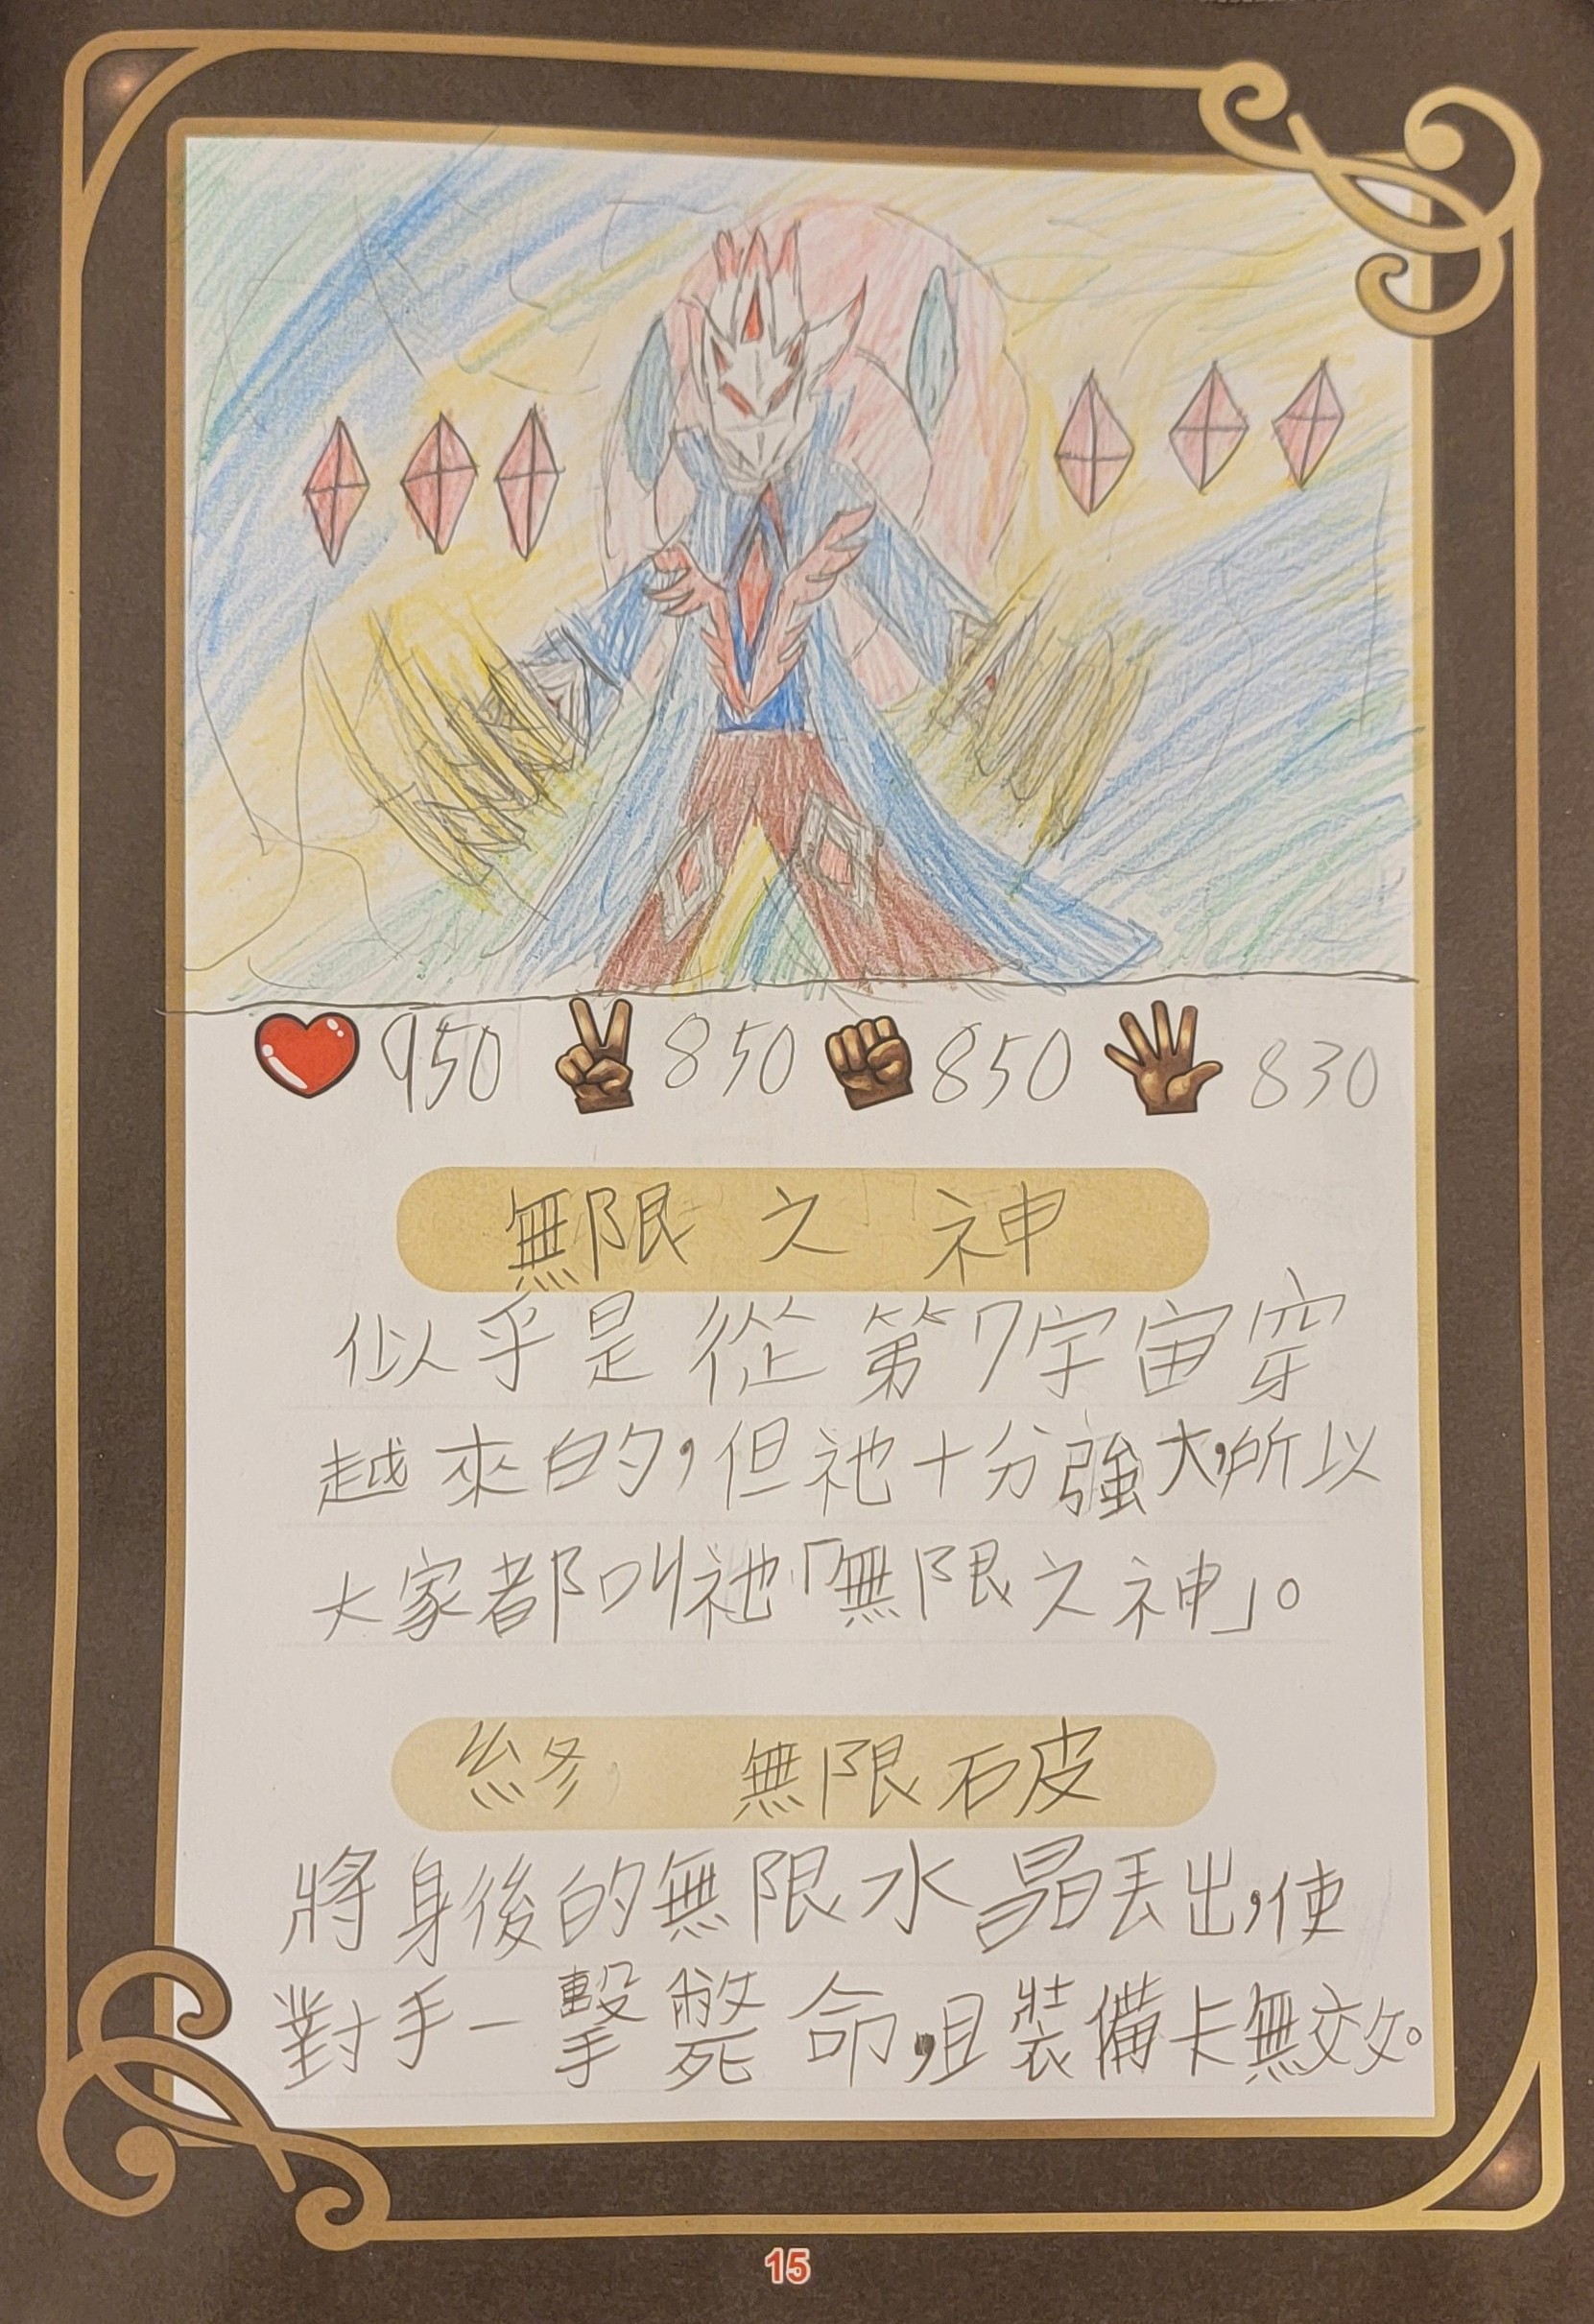 950 850 850 830
無限之神
似乎是從第7宇宙穿
越來的，但祂十分強大，所以
大家都叫祂「無限之神」。
終 無限破
將身後的無限水晶丟出，使
對手一擊斃命，且裝備卡無效。
15